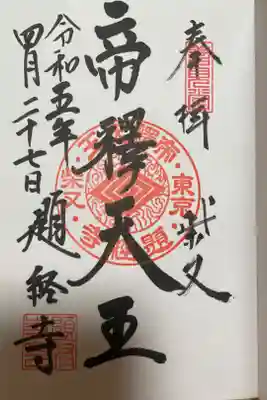 奉拝
柴又
帝釋天王
令和五年
四月二十七日
題経寺
東京
柴又